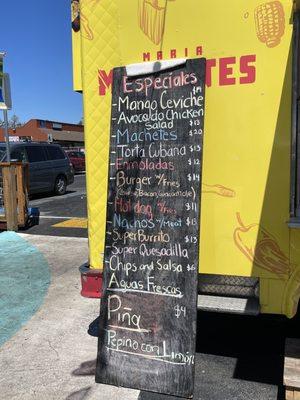 MARIA
Especiales
-Mango Ceviche $14
-Avocado Chicken
Salad $13
-Machetes $20
-Torta Cubana $13
-Enmoladas $12
-Burger w/Fries $14
(Double Bacon/Guacamole)
-Hotdog w/Fries $11
-Nachos w/Meat $13
-Super Burrito $13
-Super Quesadilla
-Chips and Salsa $6
Aguas Frescas
-Piña $4
Pepino con Limón